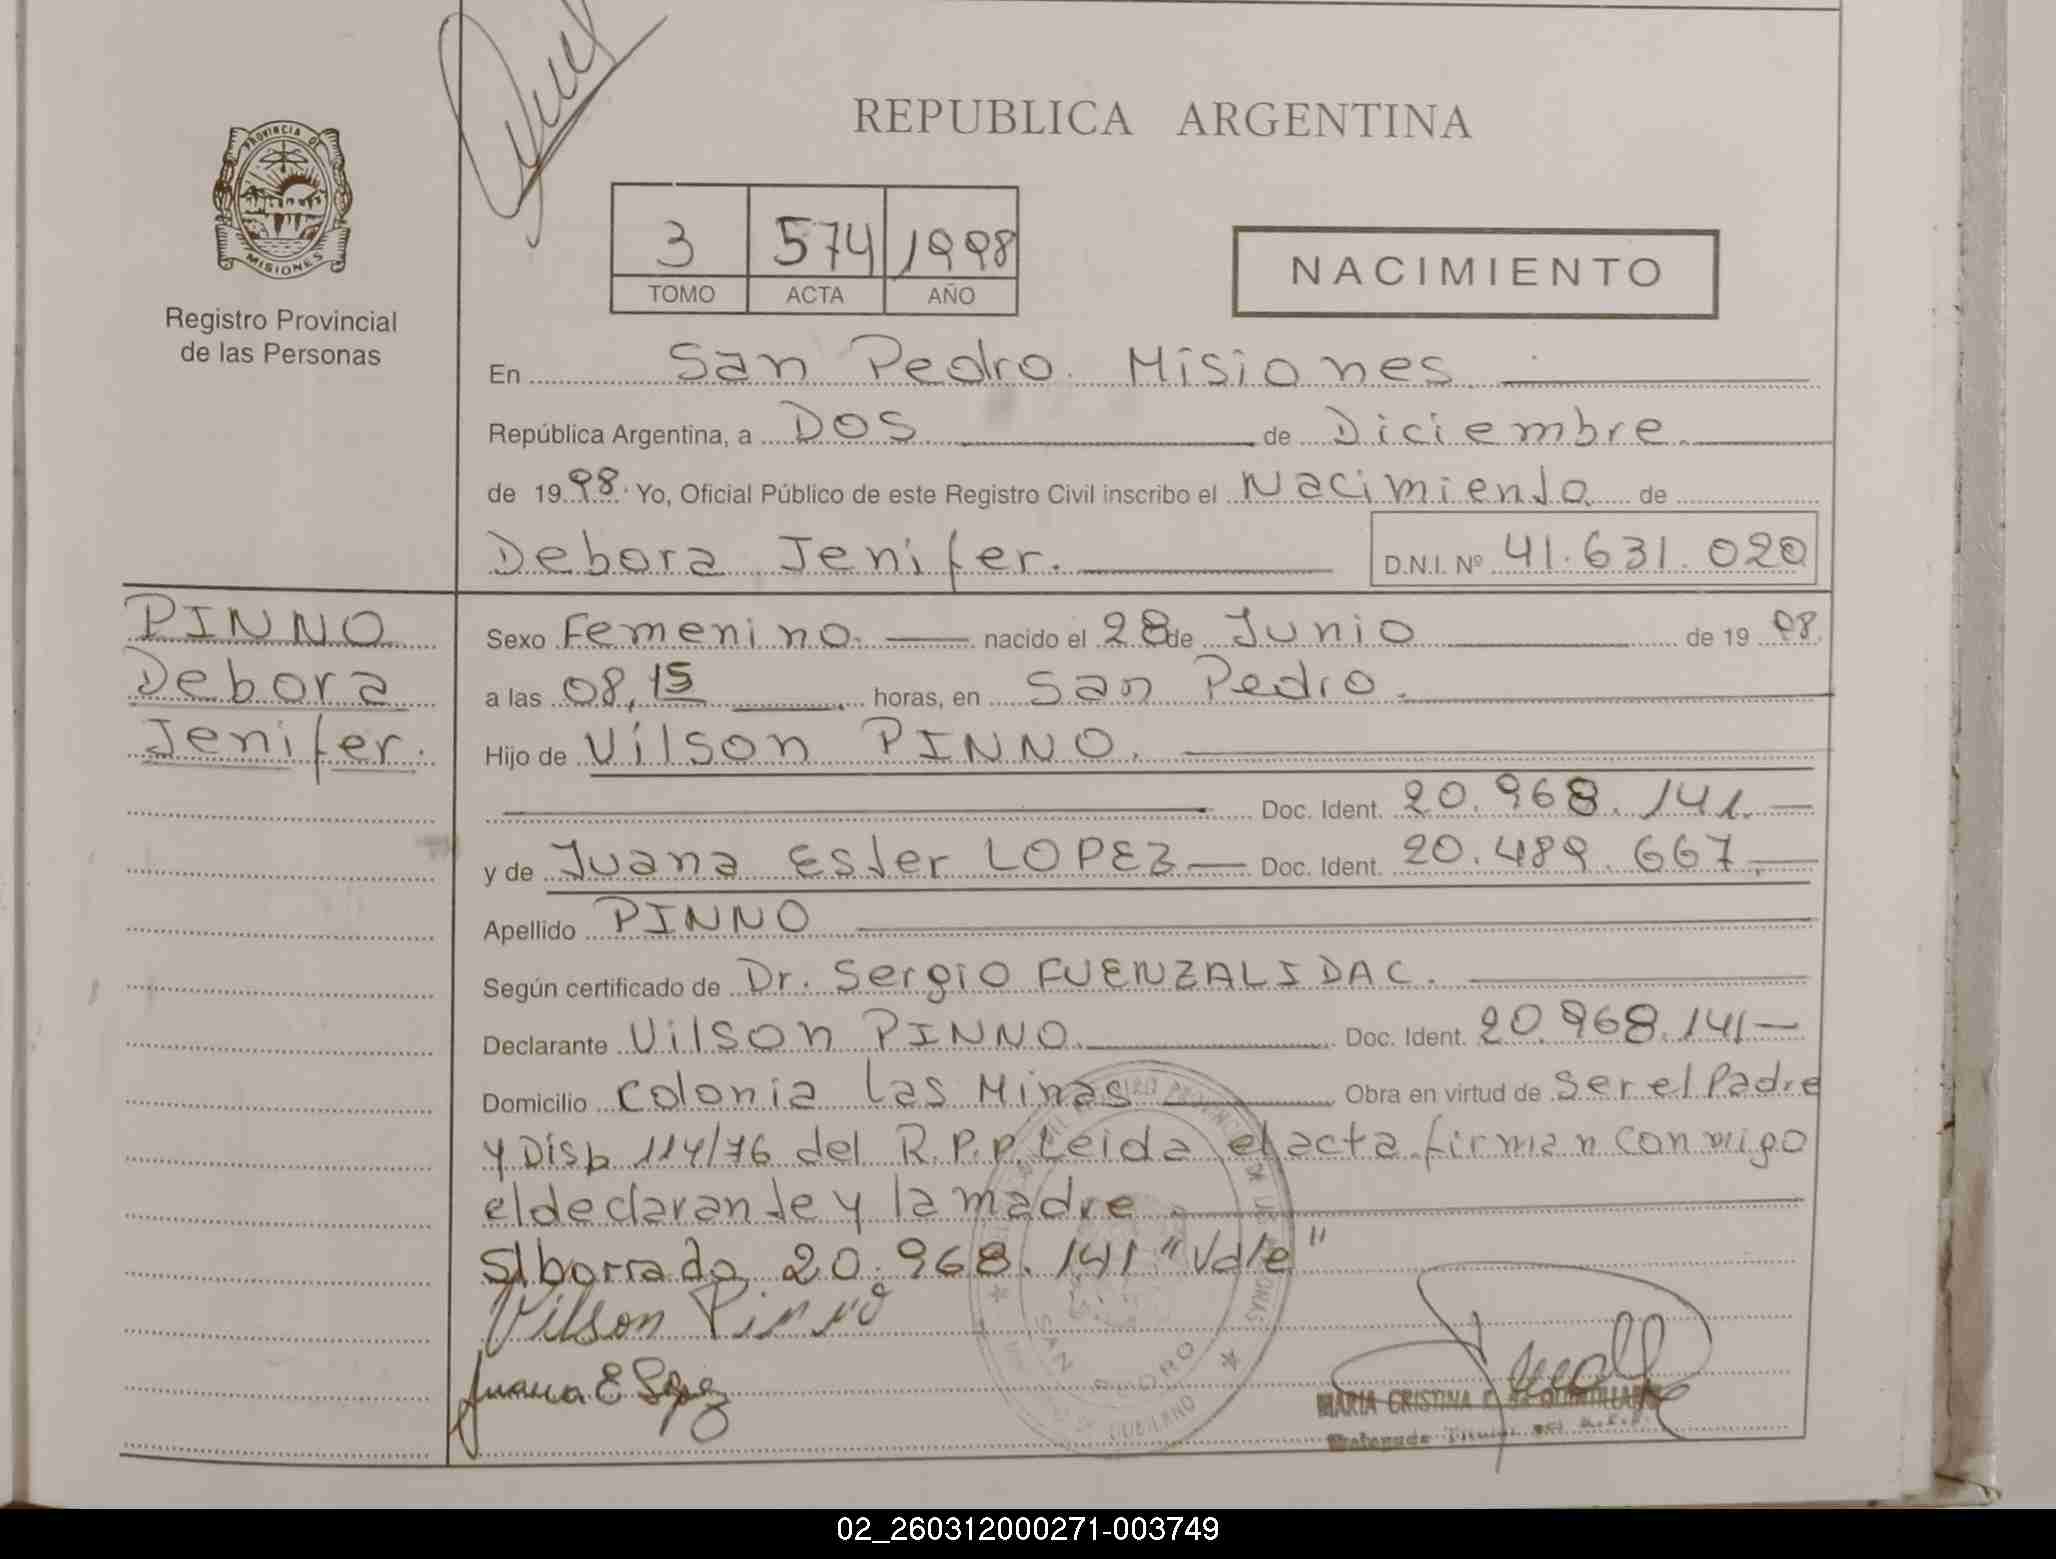 PROVINCIA DE
MISIONES
Registro Provincial
de las Personas
REPUBLICA ARGENTINA
3 574 1998
TOMO ACTA AÑO
NACIMIENTO
En San Pedro. Misiones.
República Argentina, a DOS de Diciembre.
de 1998. Yo, Oficial Público de este Registro Civil inscribo el Nacimiento de
Debora Jenifer. D.N.I. Nº 41.631.020
PINNO
Debora
Jenifer.
Sexo Femenino. nacido el 28 de Junio de 1998.
a las 08,15 horas, en San Pedro.
Hijo de Vilson PINNO.
Doc. Ident. 20.968.141.
y de Juana Ester LOPEZ Doc. Ident. 20.489.667.
Apellido PINNO
Según certificado de Dr. Sergio FUENZALIDA C.
Declarante Vilson PINNO. Doc. Ident. 20.968.141
Domicilio Colonia Las Minas Obra en virtud de Ser el Padre
y Disp 114/76 del R.P.P. Leida el acta firman conmigo
el declarante y la madre.
S/borrado 20.968.141 "Vale"
Vilson Pinno
Juana E Lopez
SAN PEDRO
MARIA CRISTINA
Delegada Titular
02_260312000271-003749